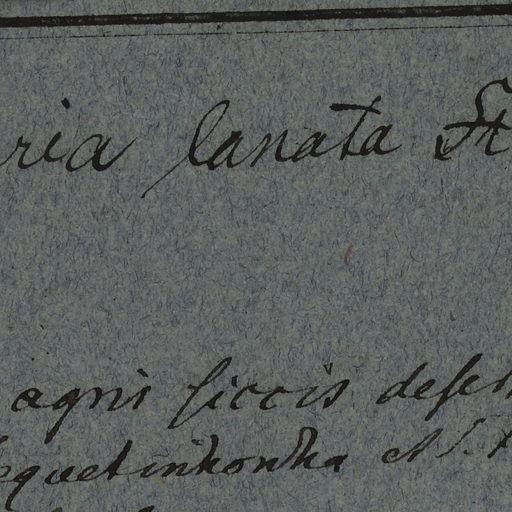 ria lanata St
agris siccis dese
equetinhonha et S.